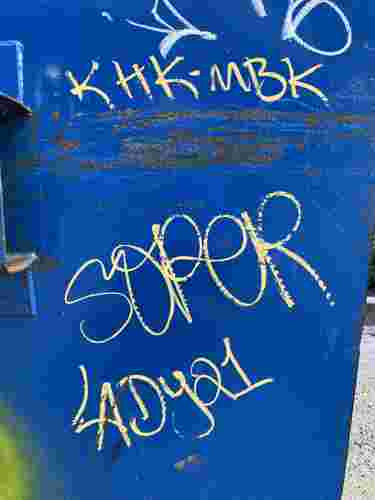 KHK-MBK
SOPER
LADY21